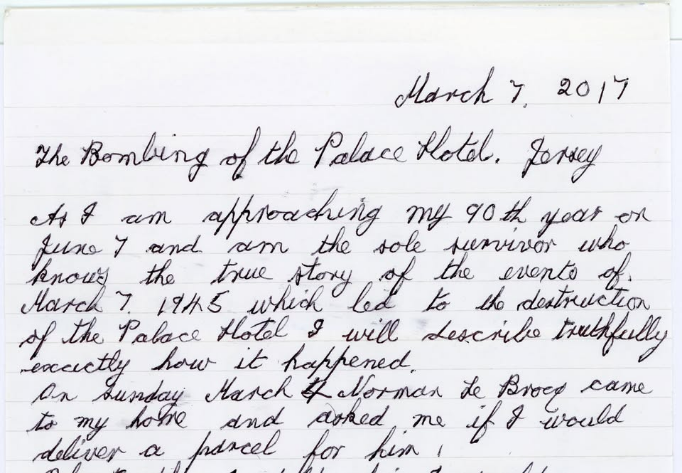 March 7, 2017
The Bombing of the Palace Hotel. Jersey
As I am approaching my 90th year on
June 7 and am the sole survivor who
knows the true story of the events of.
March 7. 1945 which led to the destruction
of the Palace Hotel I will describe truthfully
exactly how it happened.
On Sunday March 4 Norman Le Brocq came
to my home and asked me if I would
deliver a parcel for him,